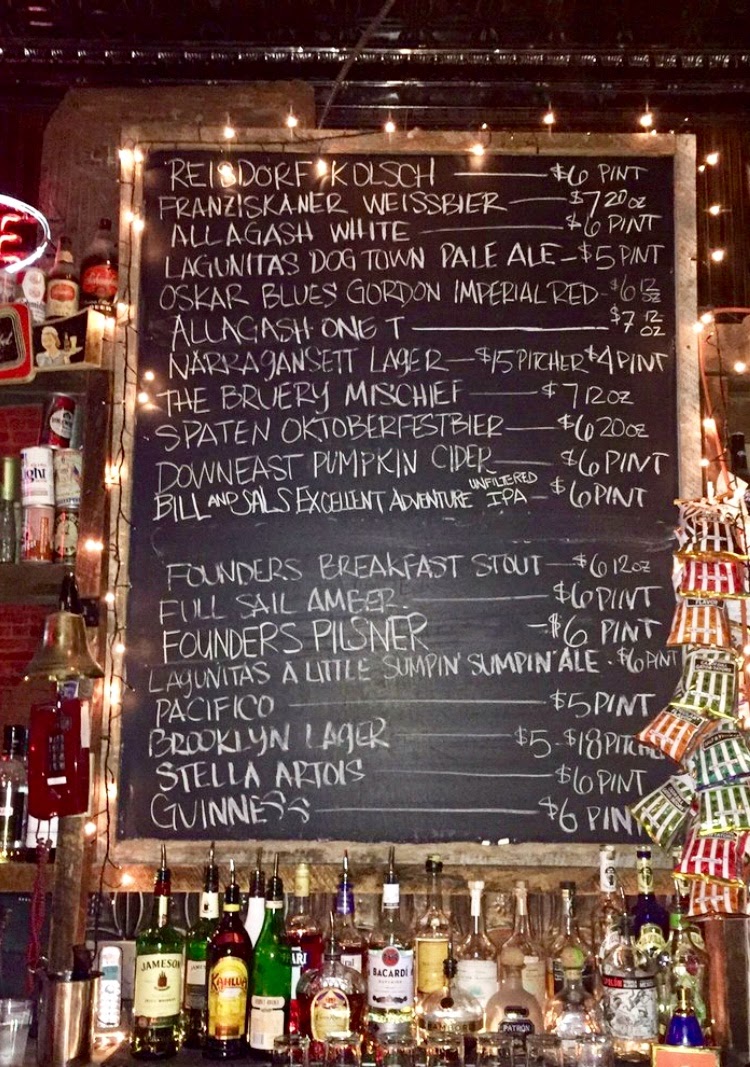 REISDORF KOLSCH $6 PINT
FRANZISKANER WEISSBIER $7 20 OZ
ALLAGASH WHITE $6 PINT
LAGUNITAS DOG TOWN PALE ALE - $5 PINT
OSKAR BLUES GORDON IMPERIAL RED - $6 12 OZ
ALLAGASH ONE T $7 12 OZ
NARRAGANSETT LAGER - $15 PITCHER $4 PINT
THE BRUERY MISCHIEF $7 12 OZ
SPATEN OKTOBERFESTBIER $6 20 OZ
DOWNEAST PUMPKIN CIDER $6 PINT
BILL AND SALS EXCELLENT ADVENTURE UNFILTERED IPA - $6 PINT
FOUNDERS BREAKFAST STOUT - $6 12 OZ
FULL SAIL AMBER $6 PINT
FOUNDERS PILSNER - $6 PINT
LAGUNITAS A LITTLE SUMPIN' SUMPIN' ALE - $6 PINT
PACIFICO $5 PINT
BROOKLYN LAGER $5 - $18 PITCHE
STELLA ARTOIS $6 PINT
GUINNESS $6 PINT
JAMESON
KAHLÚA
BACARDI
PATRÓN